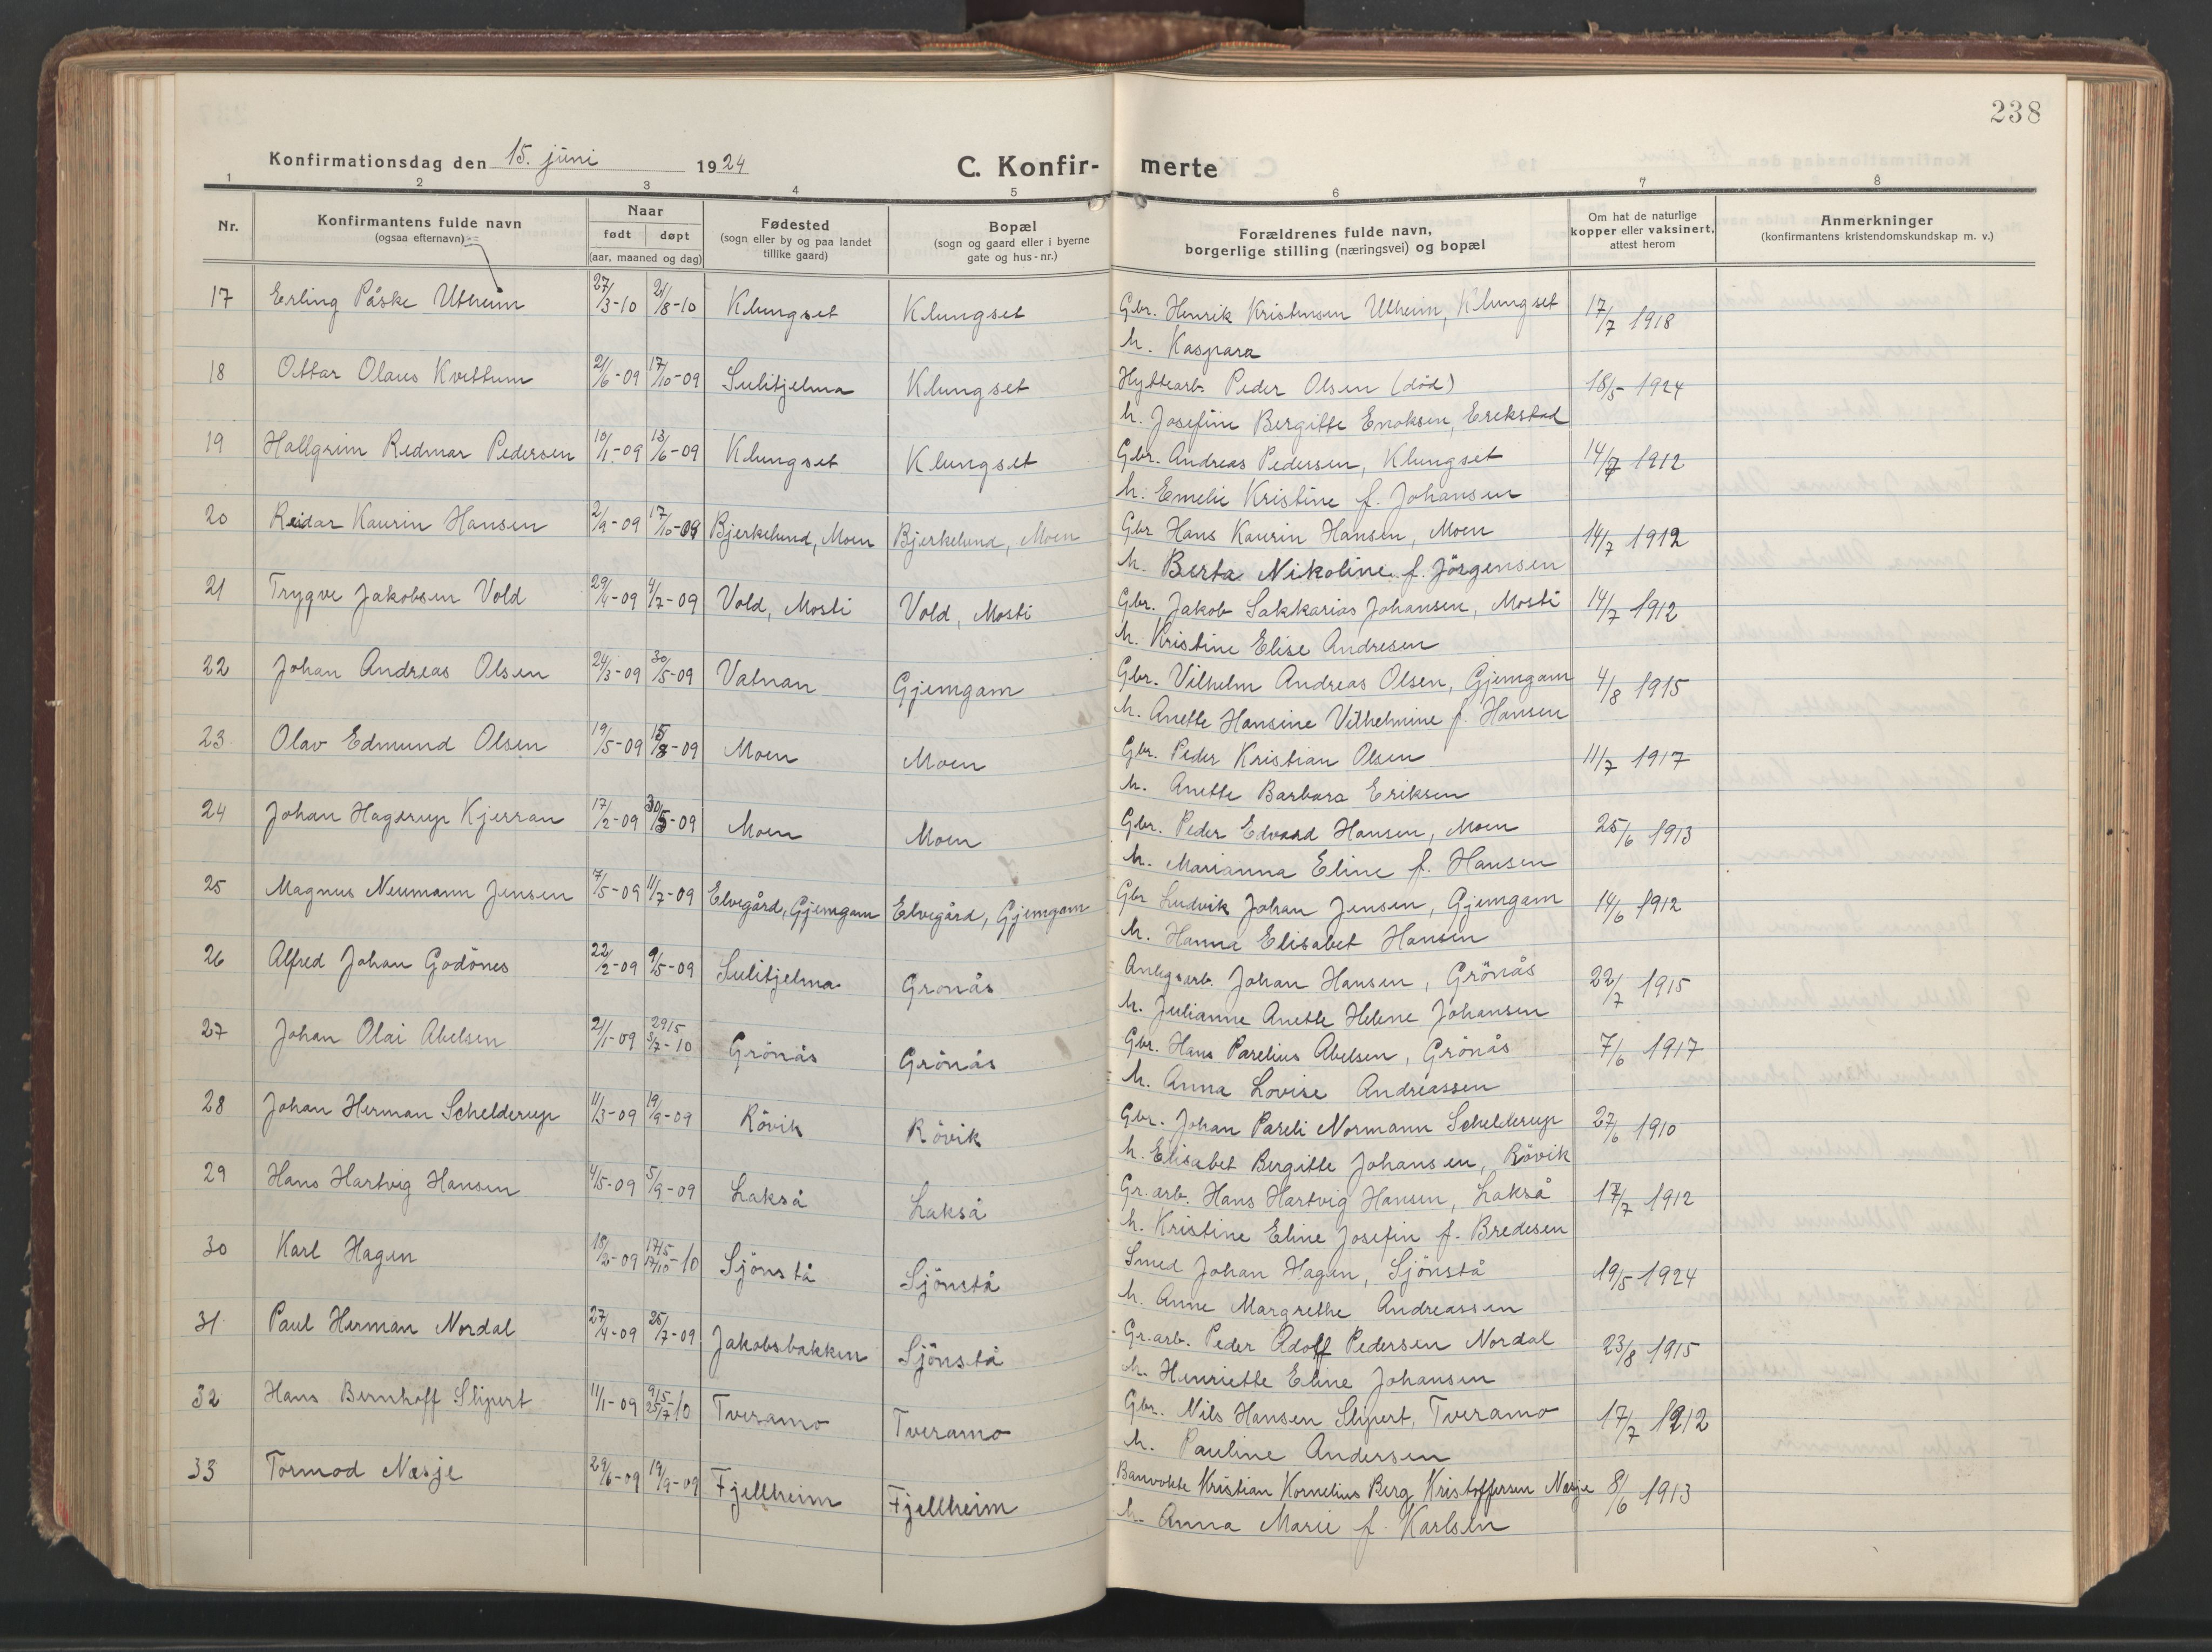 238
Konfirmationsdag den 15. juni 1924
C. Konfir- merte
1 2 3 4 5 6 7 8
Nr.
Konfirmantens fulde navn
(ogsaa efternavn)
Naar
født døpt
(aar, maaned og dag)
Fødested
(sogn eller by og paa landet
tillike gaard)
Bopæl
(sogn og gaard eller i byerne
gate og hus-nr.)
Forældrenes fulde navn,
borgerlige stilling (næringsvei) og bopæl
Om hat de naturlige
kopper eller vaksinert,
attest herom
Anmerkninger
(konfirmantens kristendomskundskap m. v.)
17 Erling Påske Utheim 27/3-10 21/8-10 Klungset Klungset Gbr. Henrik Kristensen Utheim, Klungset 17/7 1918
h. Kaspara
18 Ottar Olaus Kvettum 21/6-09 17/10-09 Sulitjelma Klungset Hyttearb. Peder Olsen (död) 18/5-1924
h. Josefine Bergitte Enoksen, Erekstad
19 Hallgrim Redmar Pedersen 10/1-09 13/6-09 Klungset Klungset Gbr. Andreas Pedersen, Klungset 14/7 1912
h. Emelie Kristine f. Johansen
20 Reidar Kaurin Hansen 2/9-09 17/10-09 Bjerkelund, Moen Bjerkelund, Moen Gbr Hans Kaurin Hansen, Moen 14/7 1912
h. Berta Nikoline f. Jörgensen
21 Trygve Jakobsen Vold 29/4-09 4/7-09 Vold, Mosti Vold, Mosti Gbr. Jakob Sakkarias Johansen, Mosti 14/7 1912
h. Kristine Elise Andresen
22 Johan Andreas Olsen 24/3-09 30/5-09 Vatnan Gjemgam Gbr. Vilhelm Andreas Olsen, Gjemgam 4/8 1915
h. Anette Hansine Vilhelmine f. Hansen
23 Olav Edmund Olsen 19/5-09 15/8-09 Moen Moen Gbr. Peder Kristian Olsen 11/7 1917
h. Anette Barbara Eriksen
24 Johan Hagerup Kjerran 17/2-09 30/5-09 Moen Moen Gbr. Peder Edvard Hansen, Moen 25/6 1913
h. Marianna Eline f. Hansen
25 Magnus Neumann Jensen 7/5-09 11/7-09 Elvegård, Gjemgam Elvegård, Gjemgam Gbr Ludvik Johan Jensen, Gjemgam 14/6 1912
h. Hanna Elisabet Hansen
26 Alfred Johan Godönes 22/2-09 9/5-09 Sulitjelma Gronås Anlegsarb. Johan Hansen, Grönås 22/7 1915
h. Julianne Anette Helene Johansen
27 Johan Olai Abelsen 21/1-09 29/5 3/7-10 Grönås Grönås Gbr. Hans Parelius Abelsen, Grönås 7/6 1917
h. Anna Lovise Andreassen
28 Johan Herman Schelderup 11/3-09 19/9-09 Rövik Rövik Gbr. Johan Pareli Normann Schelderup 27/6 1910
h. Elisabet Bergitte Johansen, Rövik
29 Hans Hartvig Hansen 4/5-09 5/9-09 Lakså Lakså Gr. arb. Hans Hartvig Hansen, Lakså 17/7 1912
h. Kristine Eline Josefin f. Bredesen
30 Karl Hagen 18/2-09 17/5 17/10-10 Sjönstå Sjönstå Smed Johan Hagen, Sjönstå 19/5 1924
h. Anne Margrethe Andreassen
31 Paul Herman Nordal 27/4-09 25/7-09 Jakobsbakken Sjönstå Gr.arb. Peder Adolf Pedersen Nordal 23/8 1915
h. Henriette Eline Johansen
32 Hans Bernhoff Slipert 11/1-09 9/5 25/7-10 Tveramo Tveramo Gbr. Nils Hansen Slipert, Tveramo 17/7 1912
h. Pauline Andersen
33 Tormod Næsje 29/6-09 19/9-09 Fjellheim Fjellheim Banvokte Kristian Kornelius Berg Kristoffersen Næsje 8/6 1913
h. Anna Marie f. Karlsen